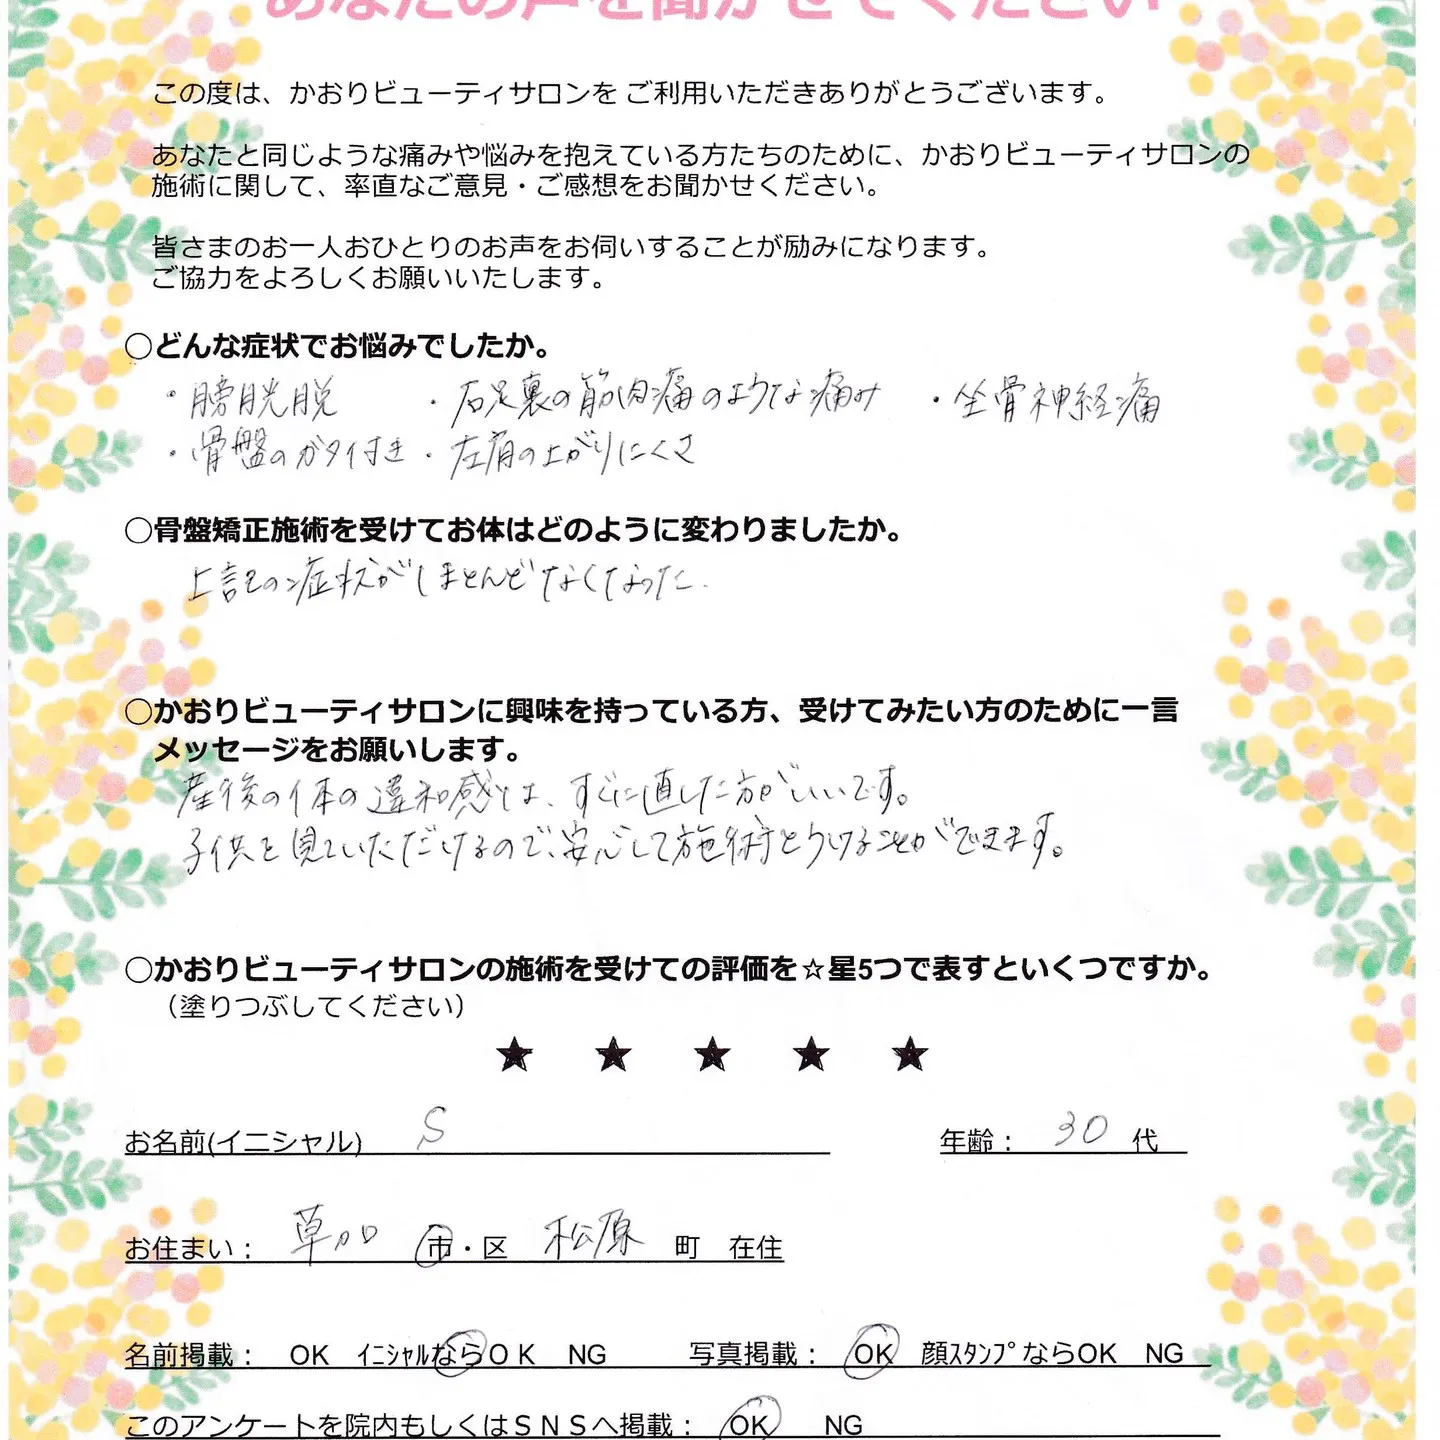 あなたの声を聞かせてください
この度は、かおりビューティサロンを ご利用いただきありがとうございます。
あなたと同じような痛みや悩みを抱えている方たちのために、かおりビューティサロンの
施術に関して、率直なご意見・ご感想をお聞かせください。
皆さまのお一人おひとりのお声をお伺いすることが励みになります。
ご協力をよろしくお願いいたします。
○どんな症状でお悩みでしたか。
・膀胱脱 ・右足裏の筋肉痛のような痛み ・坐骨神経痛
・骨盤のガタ付き ・左肩の上がりにくさ
○骨盤矯正施術を受けてお体はどのように変わりましたか。
上記の症状がほとんどなくなった.
○かおりビューティサロンに興味を持っている方、受けてみたい方のために一言
メッセージをお願いします。
産後の体の違和感は、すぐに直した方がいいです。
子供を見ていただけるので、安心して施術をうけることができます。
○かおりビューティサロンの施術を受けての評価を☆星5つで表すといくつですか。
（塗りつぶしてください）
★ ★ ★ ★ ★
お名前(イニシャル) S 年齢： 30 代
お住まい： 草加 市・区 松原 町 在住
名前掲載： OK ｲﾆｼｬﾙならＯＫ NG 写真掲載： OK 顔ｽﾀﾝﾌﾟならOK NG
このアンケートを院内もしくはＳＮＳへ掲載： OK NG